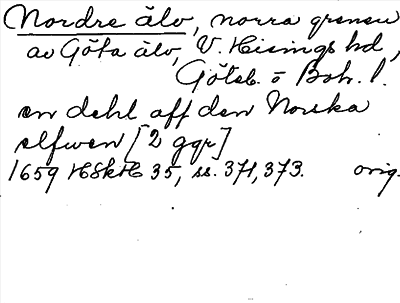 Nordre älv, norra grenen
av Göta älv, V. Hisings hd,
Göteb. o Boh. l.
en dehl aff den Norska
elfwen [2 ggr]
1659 HSkH 35, ss. 371, 373. orig.